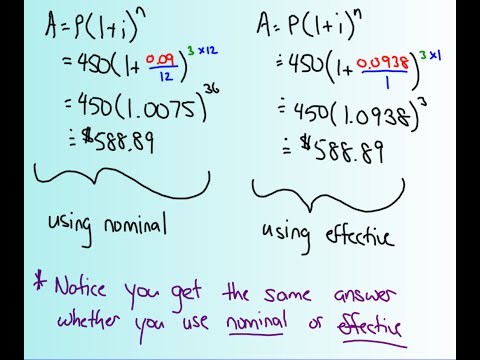 A=P(1+i)ⁿ
=450(1+0.09/12)^3×12
=450(1.0075)^36
≐$588.89
using nominal
A=P(1+i)ⁿ
=450(1+0.0938/1)^3×1
=450(1.0938)^3
≐$588.89
using effective
* Notice you get the same answer
whether you use nominal or effective